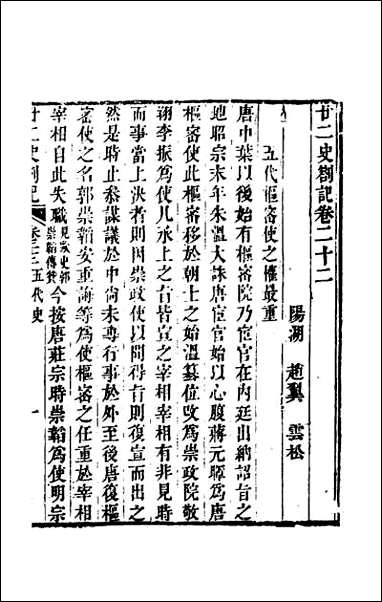 廿二史劄記卷二十二
陽湖 趙翼 雲松
五代樞密使之權最重
唐中葉以後始有樞密院乃宦官在內廷出納詔旨之
地昭宗末年朱溫大誅唐宦官始以心腹蔣元暉爲唐
樞密使此樞密移於朝士之始溫篡位改爲崇政院敬
翔李振爲使凡承上之旨皆宣之宰相宰相有非見時
而事當上決者則因崇政使以聞得旨則復宣而出之
然是時止參謀議於中尚未專行事於外至後唐復樞
密使之名郭崇韜安重誨等爲使樞密之任重於宰相
宰相自此失職見歐史郭崇韜傳贊今按唐莊宗時崇韜爲使明宗
廿二史劄記 卷二十二 五代史 一